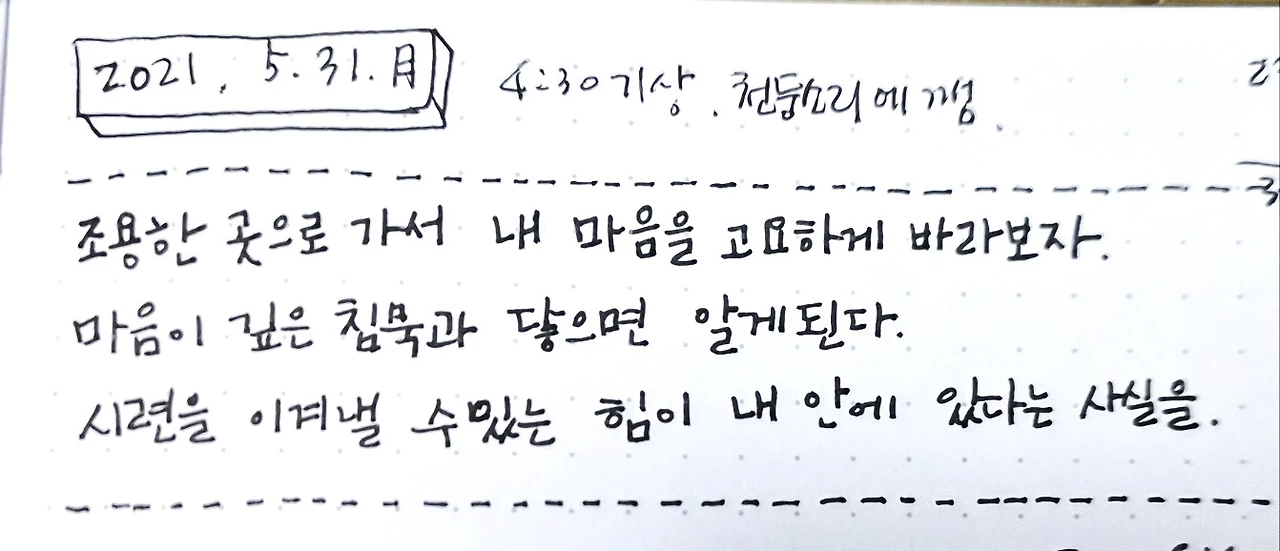 2021. 5.31.月 4:30기상. 천둥소리에 깸.
조용한 곳으로 가서 내 마음을 고요하게 바라보자.
마음이 깊은 침묵과 닿으면 알게된다.
시련을 이겨낼 수있는 힘이 내 안에 있다는 사실을.